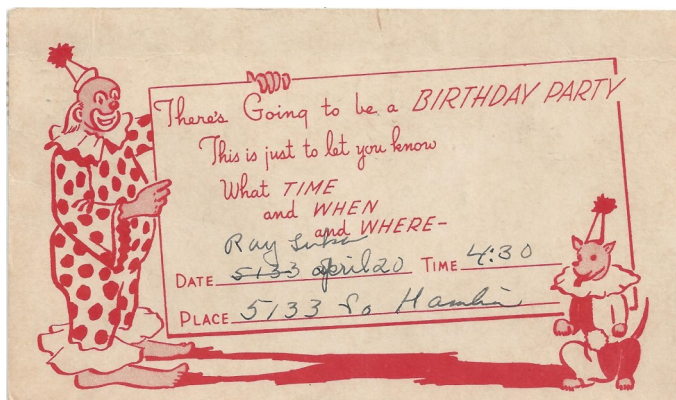 There's Going to be a BIRTHDAY PARTY
This is just to let you know
What TIME
and WHEN
and WHERE-
Ray
DATE 5133 april 20 TIME 4:30
PLACE 5133 So Hamlin